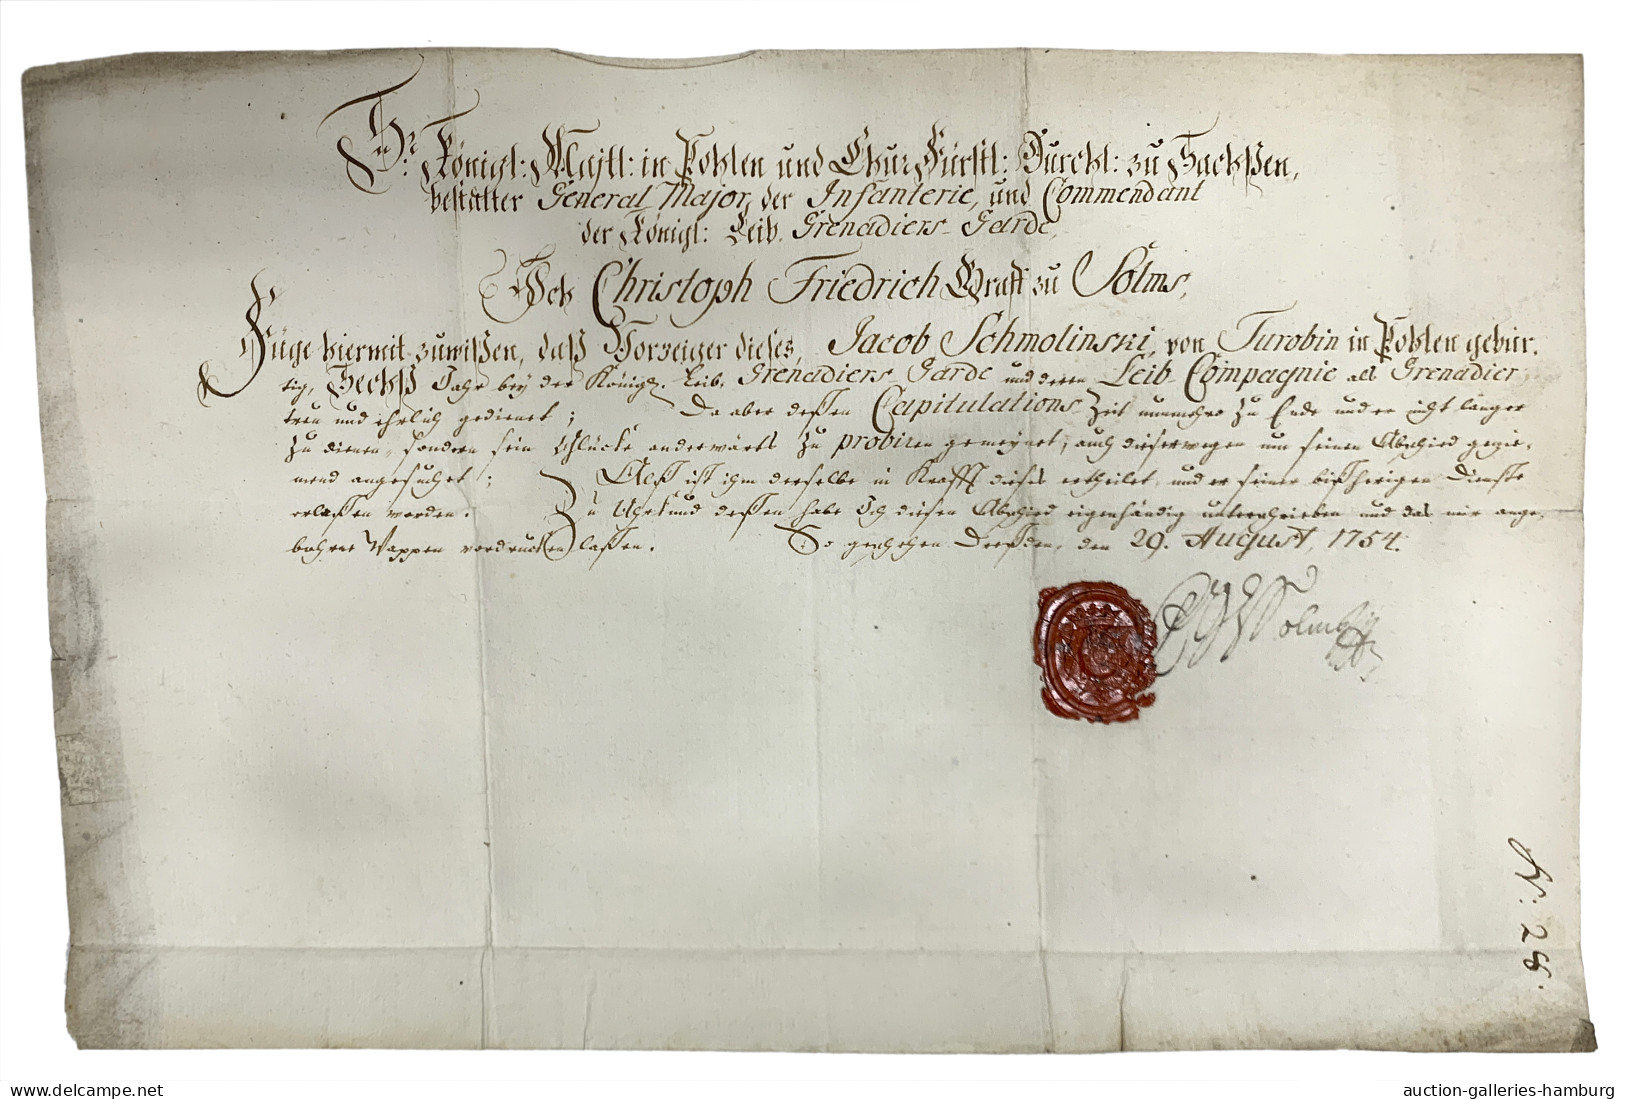 Sr. Königl: Majtt: in Pohlen und Chur Fürstl: Durchl: zu Sachßen,
bestallter General Major, der Infanterie, und Commendant
der Königl: Leib. Grenadiers Garde,
Ich Christoph Friedrich Graff zu Solms,
Füge hiermit zuwißen, daß Vorzeiger dieses, Jacob Schmolinski, von Turobin in Pohlen gebür.
tig, Sechß Jahr bey der Königl. Leib. Grenadiers Garde und deren Leib Compagnie als Grenadier
treu und ehrlich gedienet; Da aber deßen Capitulations Zeit nunmehro zu Ende und er nicht länger
zu dienen, sondern sein Glücke anderwärts zu probiren gemeynet, auch dieserwegen um seinen Abschied gezie-
mend angesuchet; Alß ist ihm derselbe in Krafft dieses ertheilet, und er seiner bißherigen Dienste
erlaßen worden. Zu Uhrkund deßen habe Ich diesen Abschied eigenhändig unterschrieben und das mir ange-
bohrne Wappen vordrucken laßen. So geschehen Dreßden, den 29. August, 1754.
Solms
N: 28.
www.delcampe.net
auction-galleries-hamburg